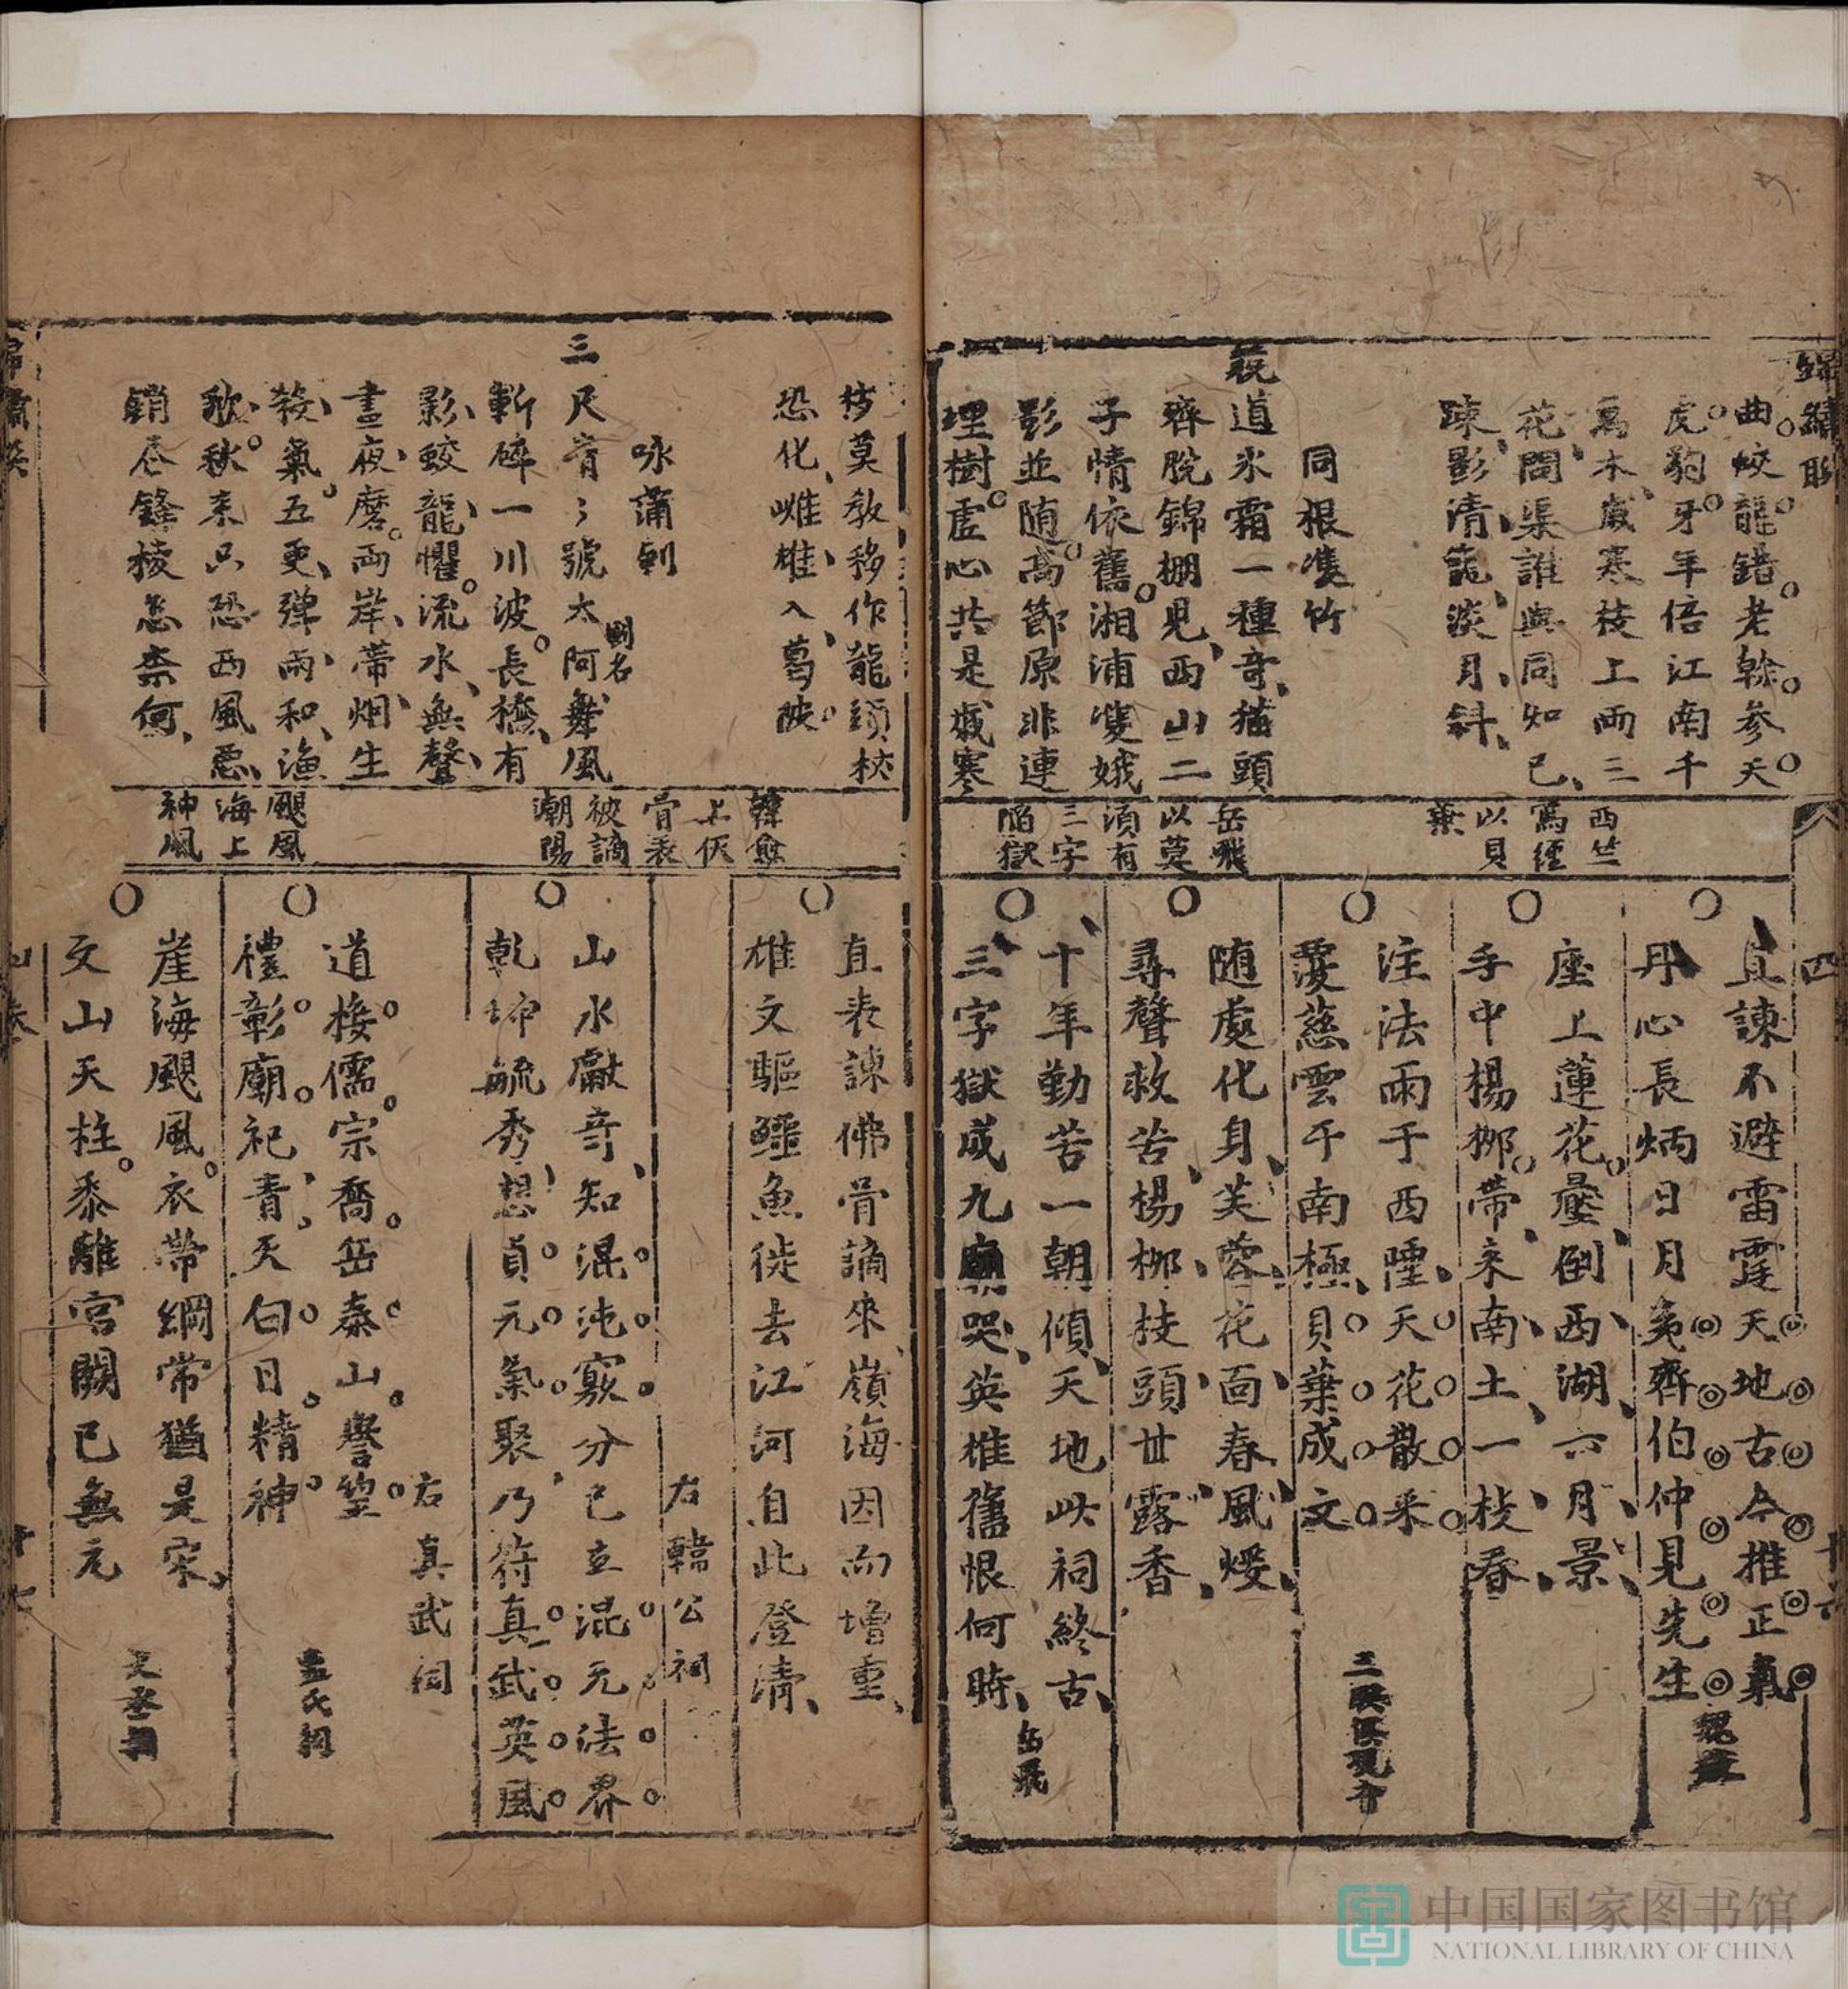 曲蛟龍錯老榦參天
虎豹牙年倍江南千
萬木歲寒枝上兩三
花問渠誰與同知己
疎影清龍淡月斜
同根隻竹
說道氷霜一種奇猫頭
齊脫錦棚見西山二
子情依舊湘浦雙娥
影並隨高節原非連
埋樹虛心共是歲寒
西竺
寫經
以貝
葉
岳飛
以莫
須有
三字
陷獄
四
直諫不避雷霆天地古今推正氣
丹心長炳日月夷齊伯仲見先生
座上蓮花疊倒西湖六月景
手中楊柳帶來南土一枝春
注法雨于西陲天花散釆
覆慈雲于南極貝葉成文
隨處化身芙蓉花面春風煖
尋聲救苦楊柳枝頭甘露香
十年勤苦一朝傾天地此祠終古
三字獄成九廟哭英雄舊恨何時
岳飛
枝莫教移作龍頭杖
恐化雌雄入葛陂
咏蒲劍
三尺青〻號太阿劍名舞風
斬碎一川波長橋有
影蛟龍懼流水無聲
晝夜磨兩岸帶烟生
殺氣五更彈雨和漁
歌秋來只恐西風惡
銷尽鋒棱怎柰何
韓愈
上佛
骨表
被謫
潮陽
颶風
海上
神風
直表諫佛骨謫來嶺海因而增重
雄文驅鱷魚徙去江河自此登清
右韓公祠
山水獻奇知混沌竅分已立混元法界
乾坤毓秀想貞元氣聚乃符真武英風
右真武祠
道接儒宗喬岳泰山譽望
禮彰廟祀青天白日精神
孟氏祠
崖海颶風衣帶綱常猶是宋
文山天柱黍離宮闕已無元
文丞祠